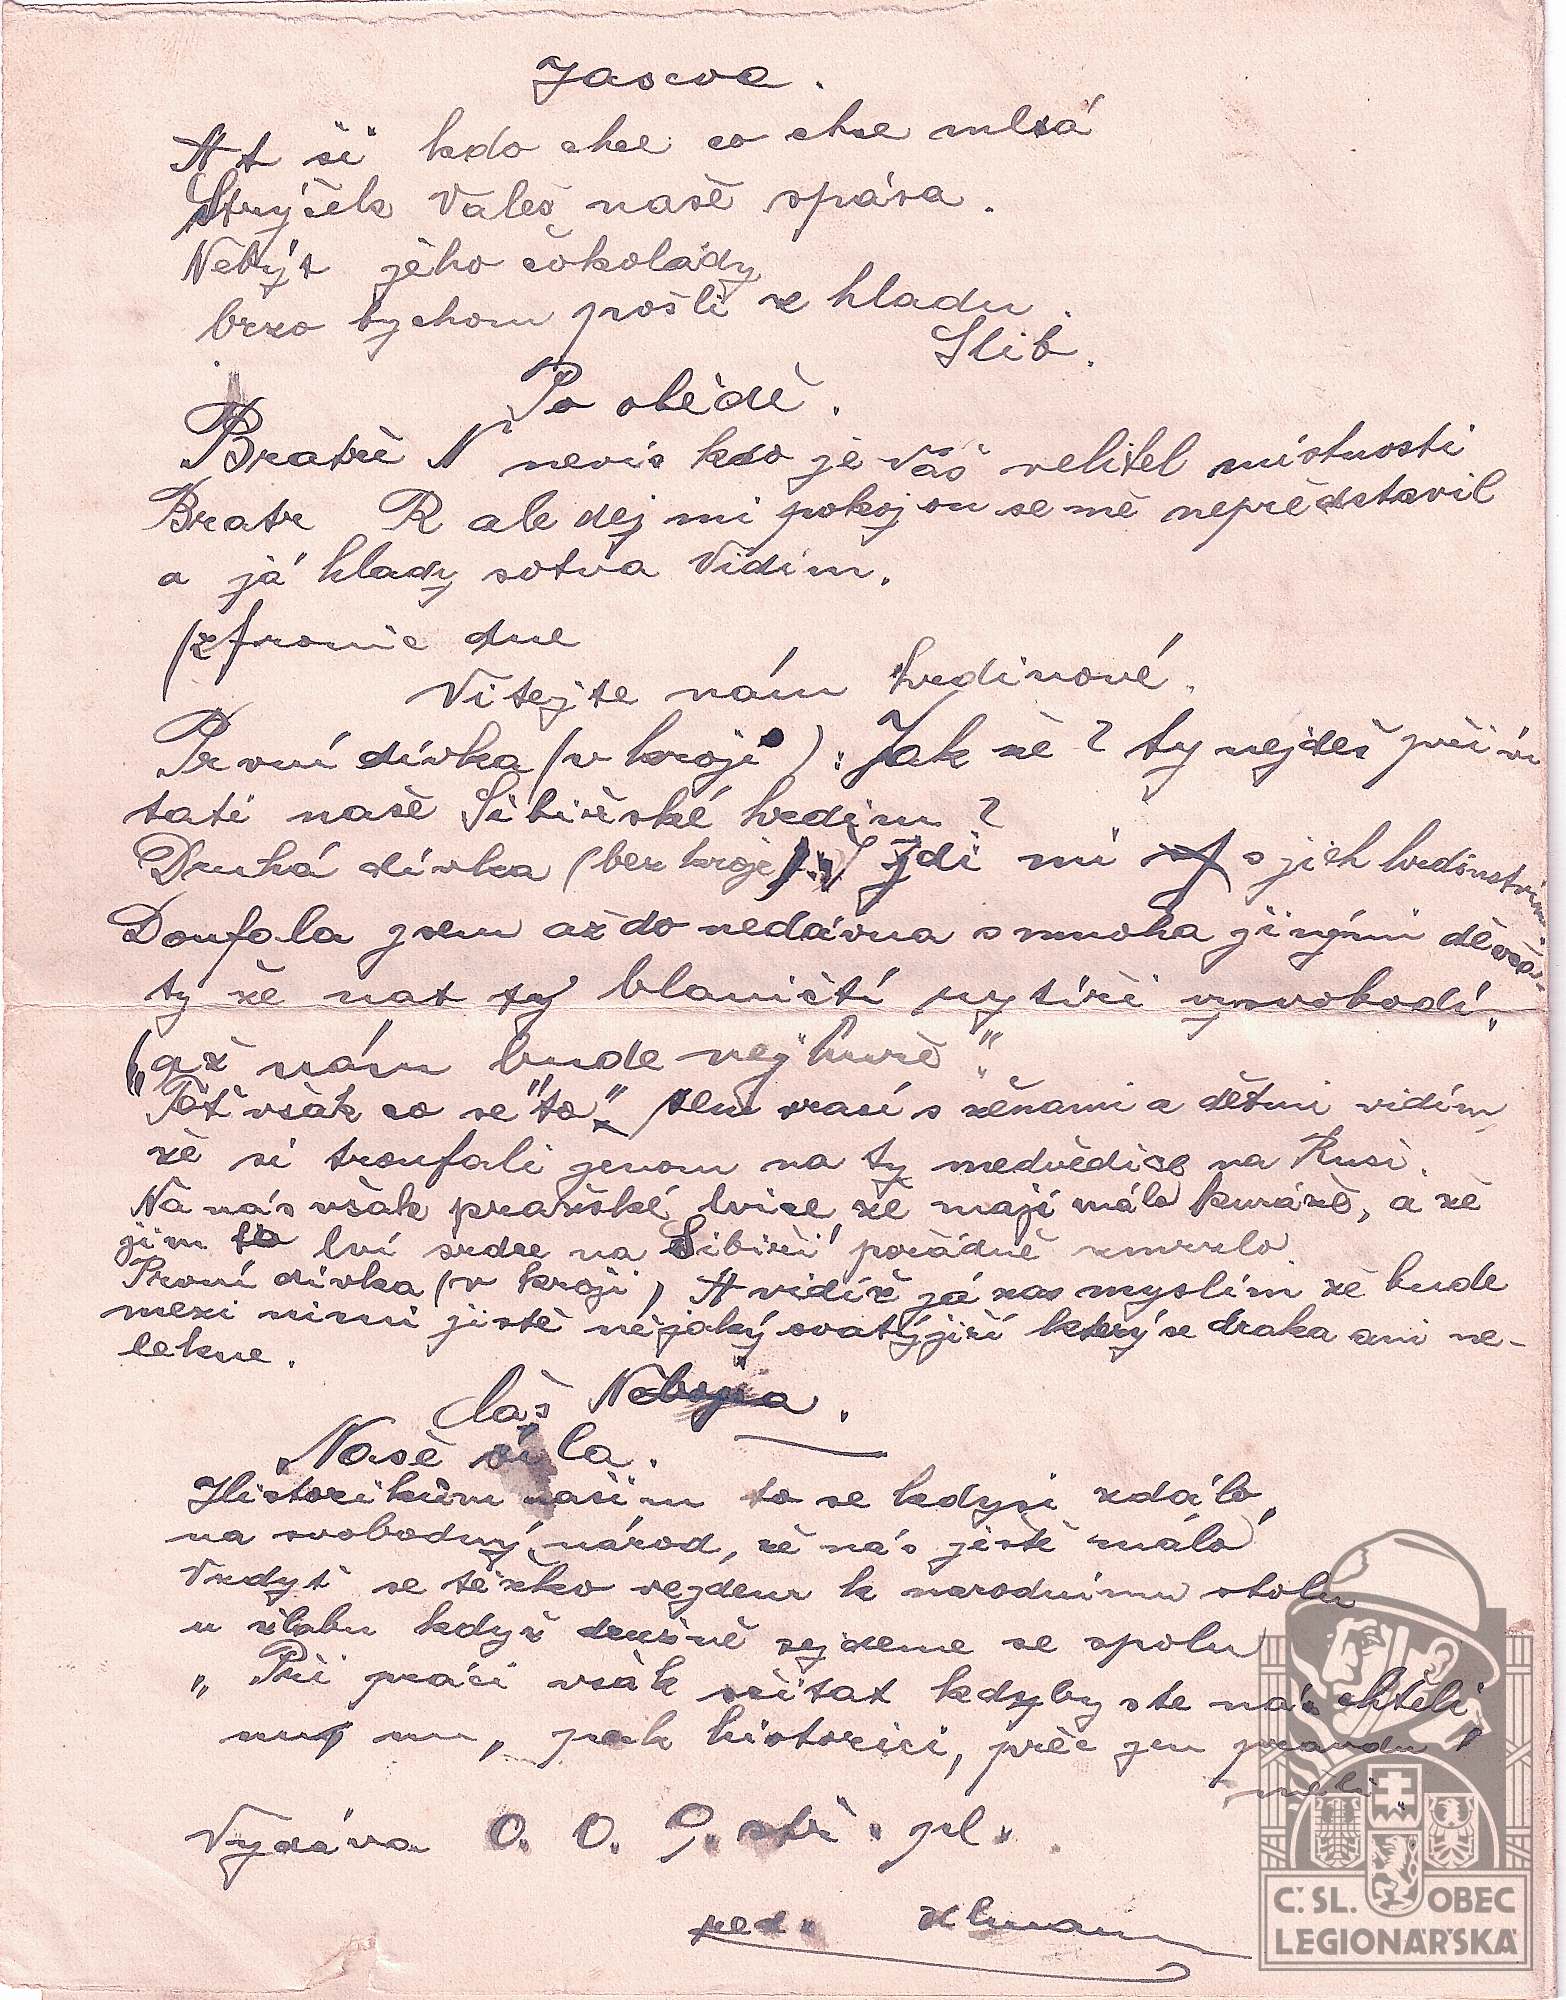 At si kdo chce co chce mlsá
Strýček Valeš naše spása.
Nebýt jeho čokolády
brzo bychom pošli z hladu.
Slib.
Po obědě.
Bratře N nevíš kdo je váš velitel místnosti
Bratr R ale dej mi pokoj on se mě nepředstavil
a já hlady sotva vidím.
dne
Vitejte nám hrdinové.
První dívka (v kroji): Jak že? ty nejdeš přiví
tati naše Sibiřské hrdiny?
Druhá dívka (bez kroje): Jdi mi s jich hrdinstvím
Doufala jsem až do nedávna s mnoha jinými děvča-
ty že nat ty blaničtí rytíři vysvobodí,
"až nám bude nejhůře".
Teť však co se "to" sem vrací s ženami a dětmi vidím
že si troufali jenom na ty medvědice na Rusi.
Na nás však pražské lvice že mají málo kuráže, a že
jim lví srdce na Sibiři pořádně zmrzlo
První dívka (v kroji) A vidíž já zas myslím že bude
mezi nimi jistě nějaký svatý jiří který se draka ani ne-
lekne.
Váš Nebojsa.
Naše síla.
Historikům našim to se kdysi zdálo,
na svobodný národ, že nás ještě málo
Vždyť se těžko vejdem k narodnímu stolu
u žlabu když družně sejdeme se spolu
"Při práci však sčítat kdyby ste nás chtěli
pak historici, přec jen pravdu
měli".
Vydáva O. O. 9. stř. pl.
red.
Č.SL. OBEC
LEGIONÁŘSKÁ